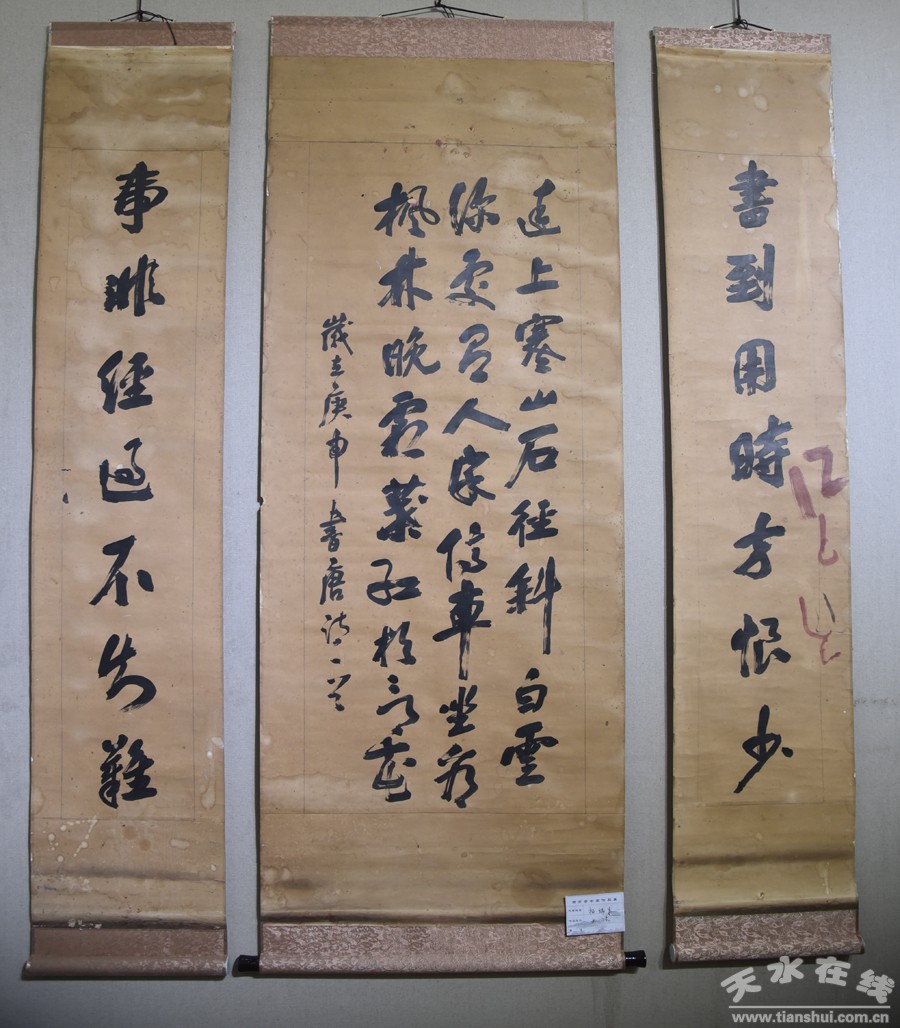 書到用時方恨少
遠上寒山石徑斜白雲
深處有人家停車坐愛
楓林晚霜葉紅於二月花
歲在庚申書唐詩一首
事非經過不知難
天水在线
www.tianshui.com.cn